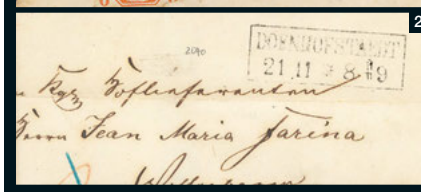 2
2040
DOENHOFSTAEDT
21 11 8 9
Kgr Hoflieferanten
Herrn Jean Maria Farina